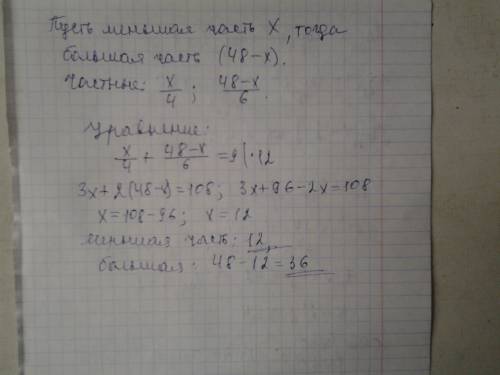 Пусть меньшая часть x, тогда
большая часть (48-x).
Частные: x/4 ; 48-x/6
Уравнение:
x/4 + 48-x/6 = 9 | ·12
3x+2(48-x)=108; 3x+96-2x=108
x=108-96; x=12
меньшая часть: 12
большая: 48-12=36